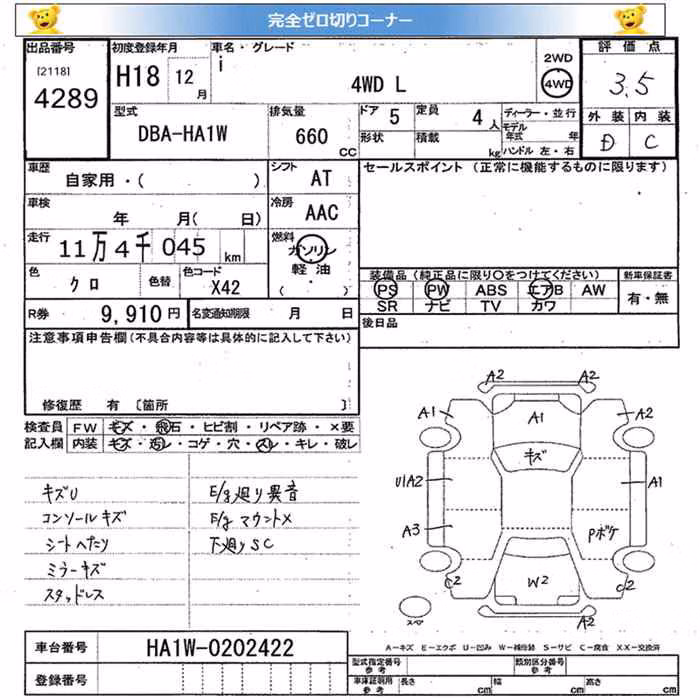 完全ゼロ切りコーナー
出品番号 初度登録年月 車名・グレード 評価点
[2118] 4289
H18 12月
i 4WD L
2WD 4WD
3.5
型式 DBA-HA1W 排気量 660 CC
ドア 5 定員 4人 ディーラー・並行
形状 積載 kg モデル年式 年
ハンドル 左・右
外装 内装
D C
車歴 自家用・( ) シフト AT
セールスポイント (正常に機能するものに限ります)
車検 年 月( 日) 冷房 AAC
走行 11万4千045 km 燃料 ガソリン 軽油 ( )
色 クロ 色替 色コード X42
装備品 (純正品に限り○をつけてください) 新車保証書
PS PW ABS エアB AW 有・無
SR ナビ TV カワ
R券 9,910円 名変通知期限 月 日
後日品
注意事項申告欄(不具合内容等は具体的に記入して下さい)
修復歴 有 〔箇所 〕
検査員 FW キズ・飛石・ヒビ割・リペア跡・×要
記入欄 内装 キズ・汚レ・コゲ・穴・スレ・キレ・破レ
キズU E/g廻り異音
コンソールキズ E/gマウント×
シートへたり 下廻りSC
ミラーキズ
スタッドレス
A2 A2
A1 A1 A2
キズ
U1A2 A1
A3 Pボケ
C2 W2 C2
スペア A2
A-キズ E-エクボ U-凹み W-補修跡 S-サビ C-腐食 XX-交換済
車台番号 HA1W-0202422
登録番号
型式指定番号 参考 類別区分番号 参考
車庫証明用 参考 長さ cm 幅 cm 高さ cm